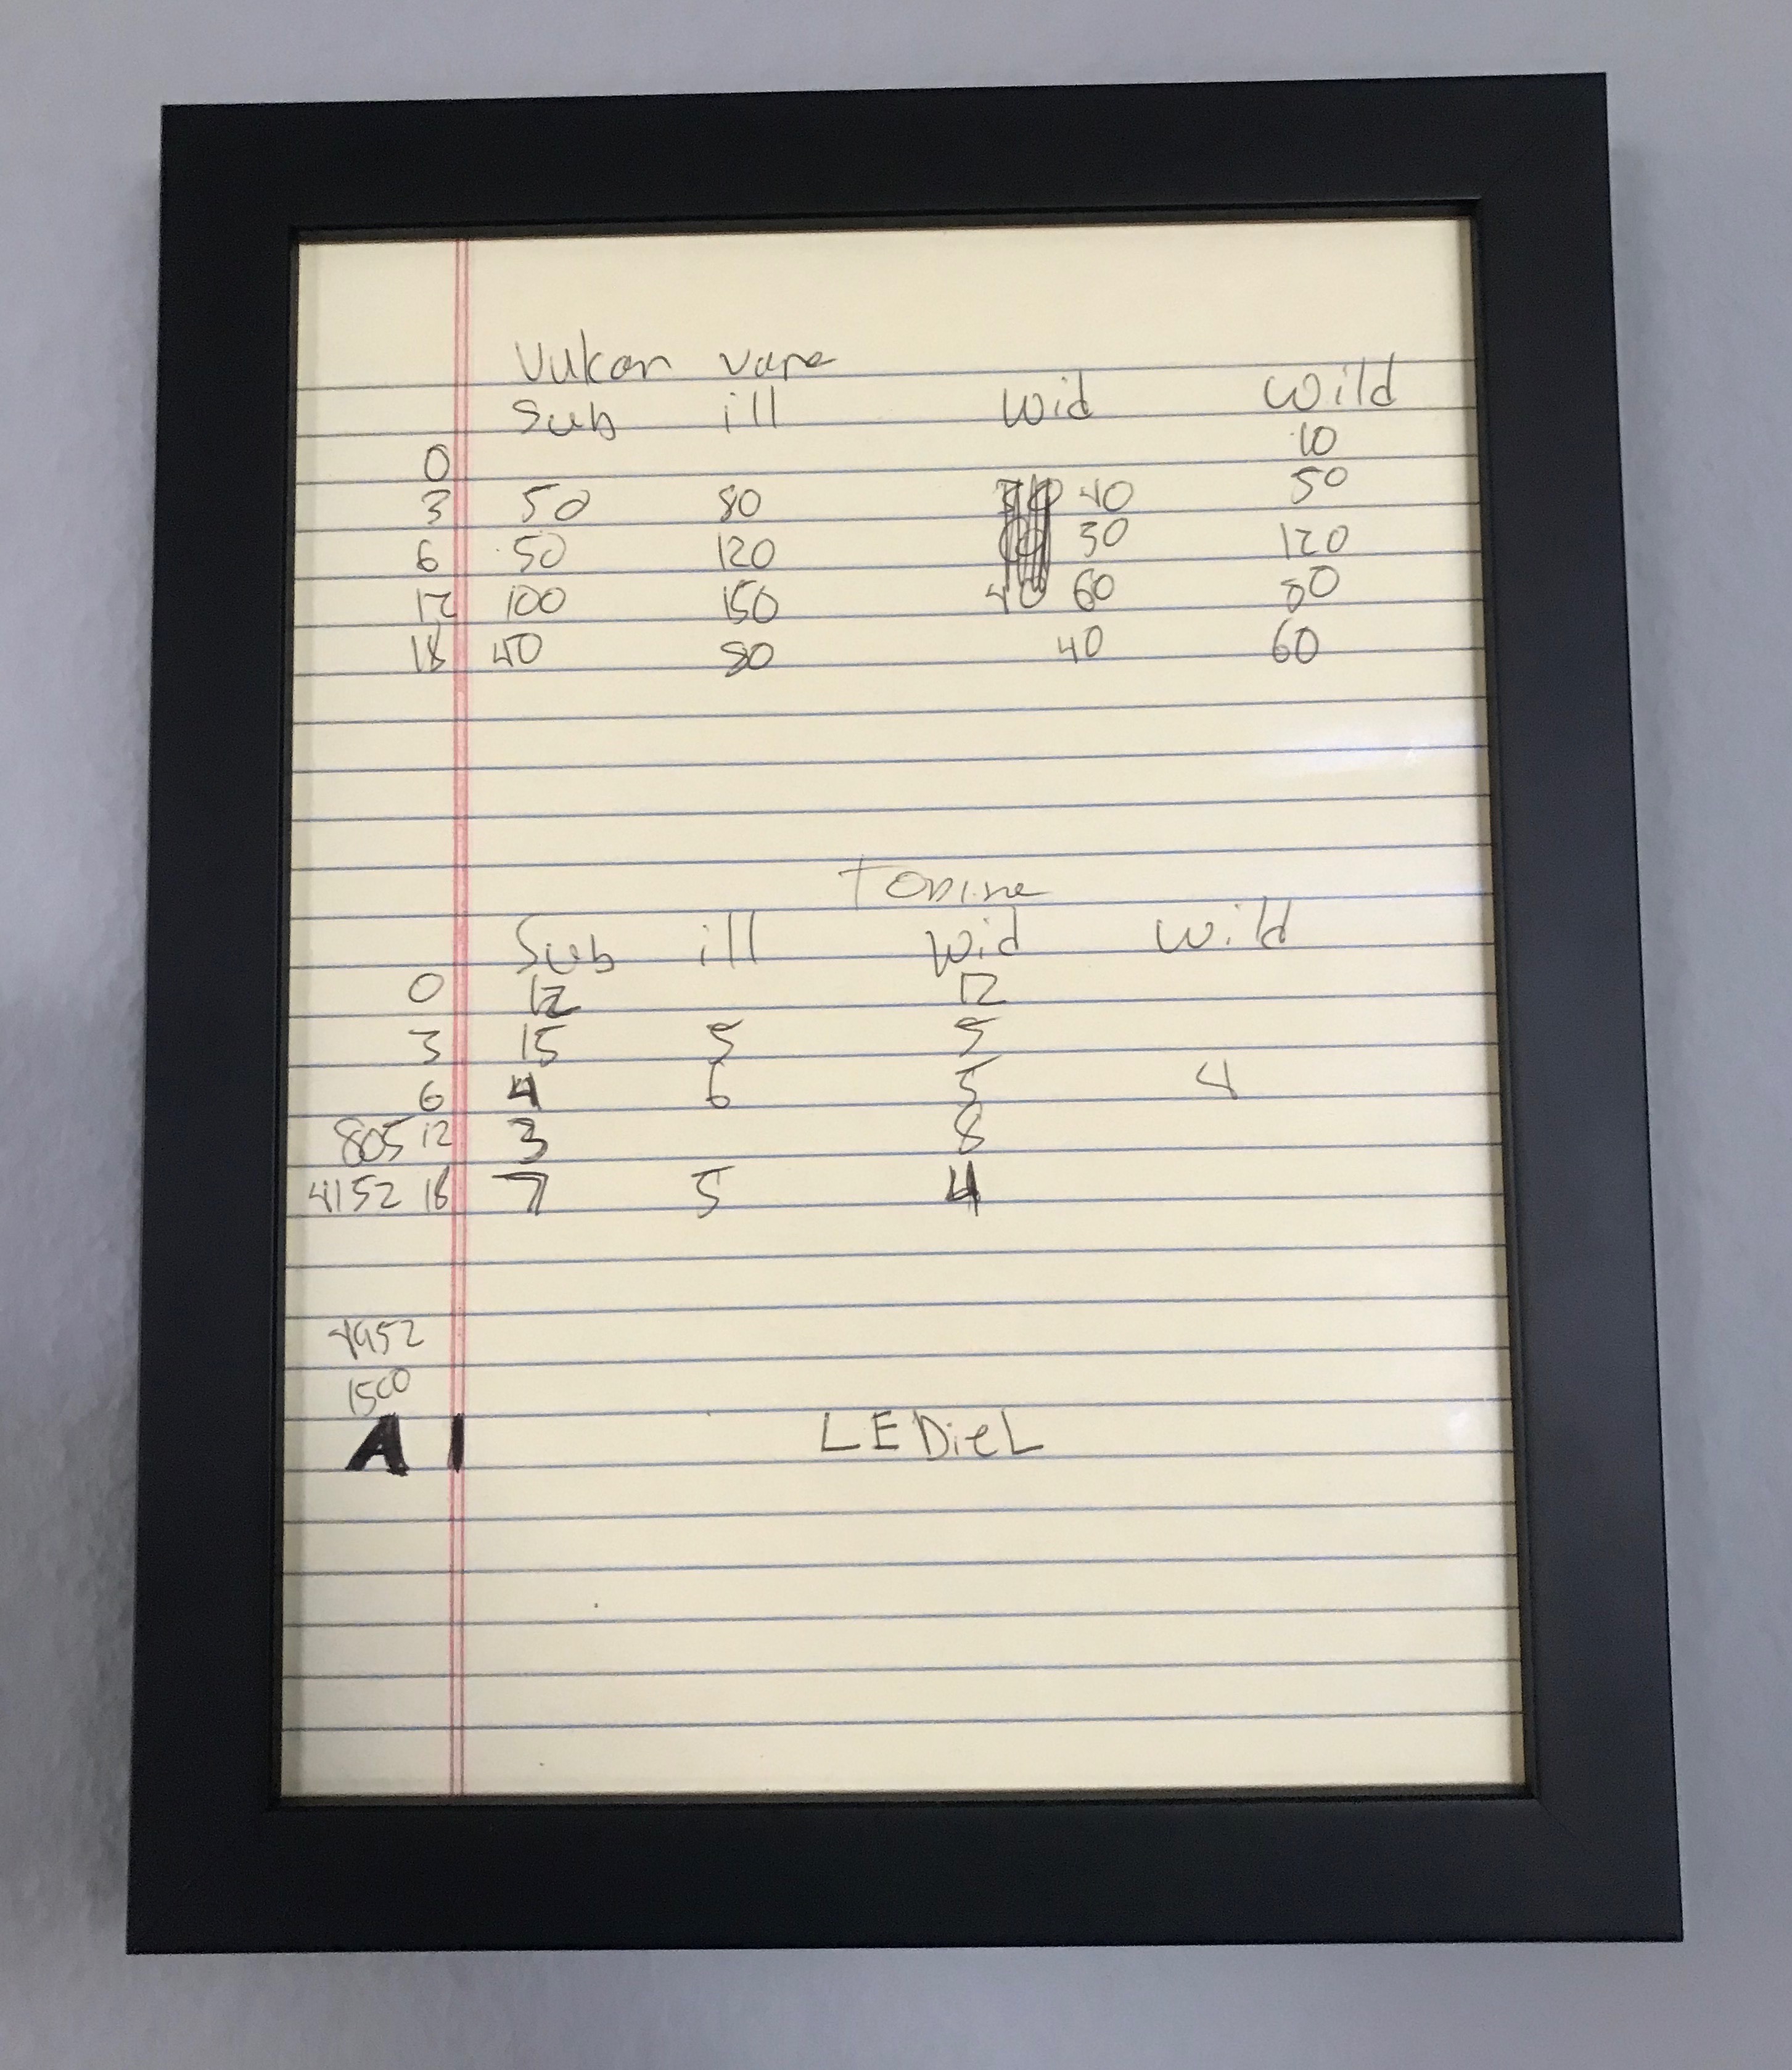 Vukan vape
Sub ill Wid Wild
0 10
3 50 80 40 50
6 50 120 30 120
12 100 150 40 60 80
18 40 80 40 60
Sub ill Wid Wild
0 12 12
3 15 5 5
6 4 6 5 4
805 12 3 8
4152 18 7 5 4
4952
1500
A 1 LEDieL